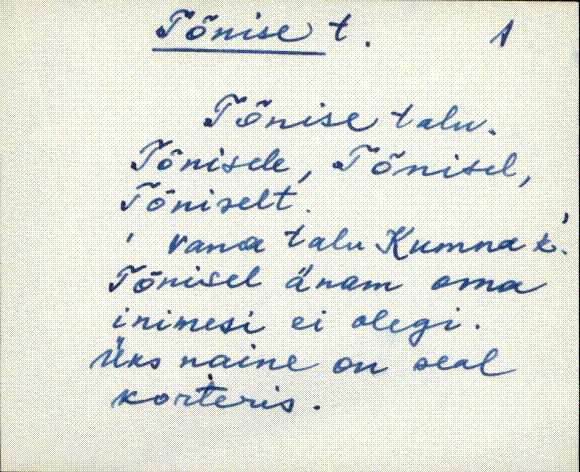 Tõnise t. 1
Tõnise talu.
Tõnisele, Tõnisel,
Tõniselt.
' vana talu Kumna k.'
Tõnisel änam oma
inimesi ei olegi.
Üks naine on seal
korteris.